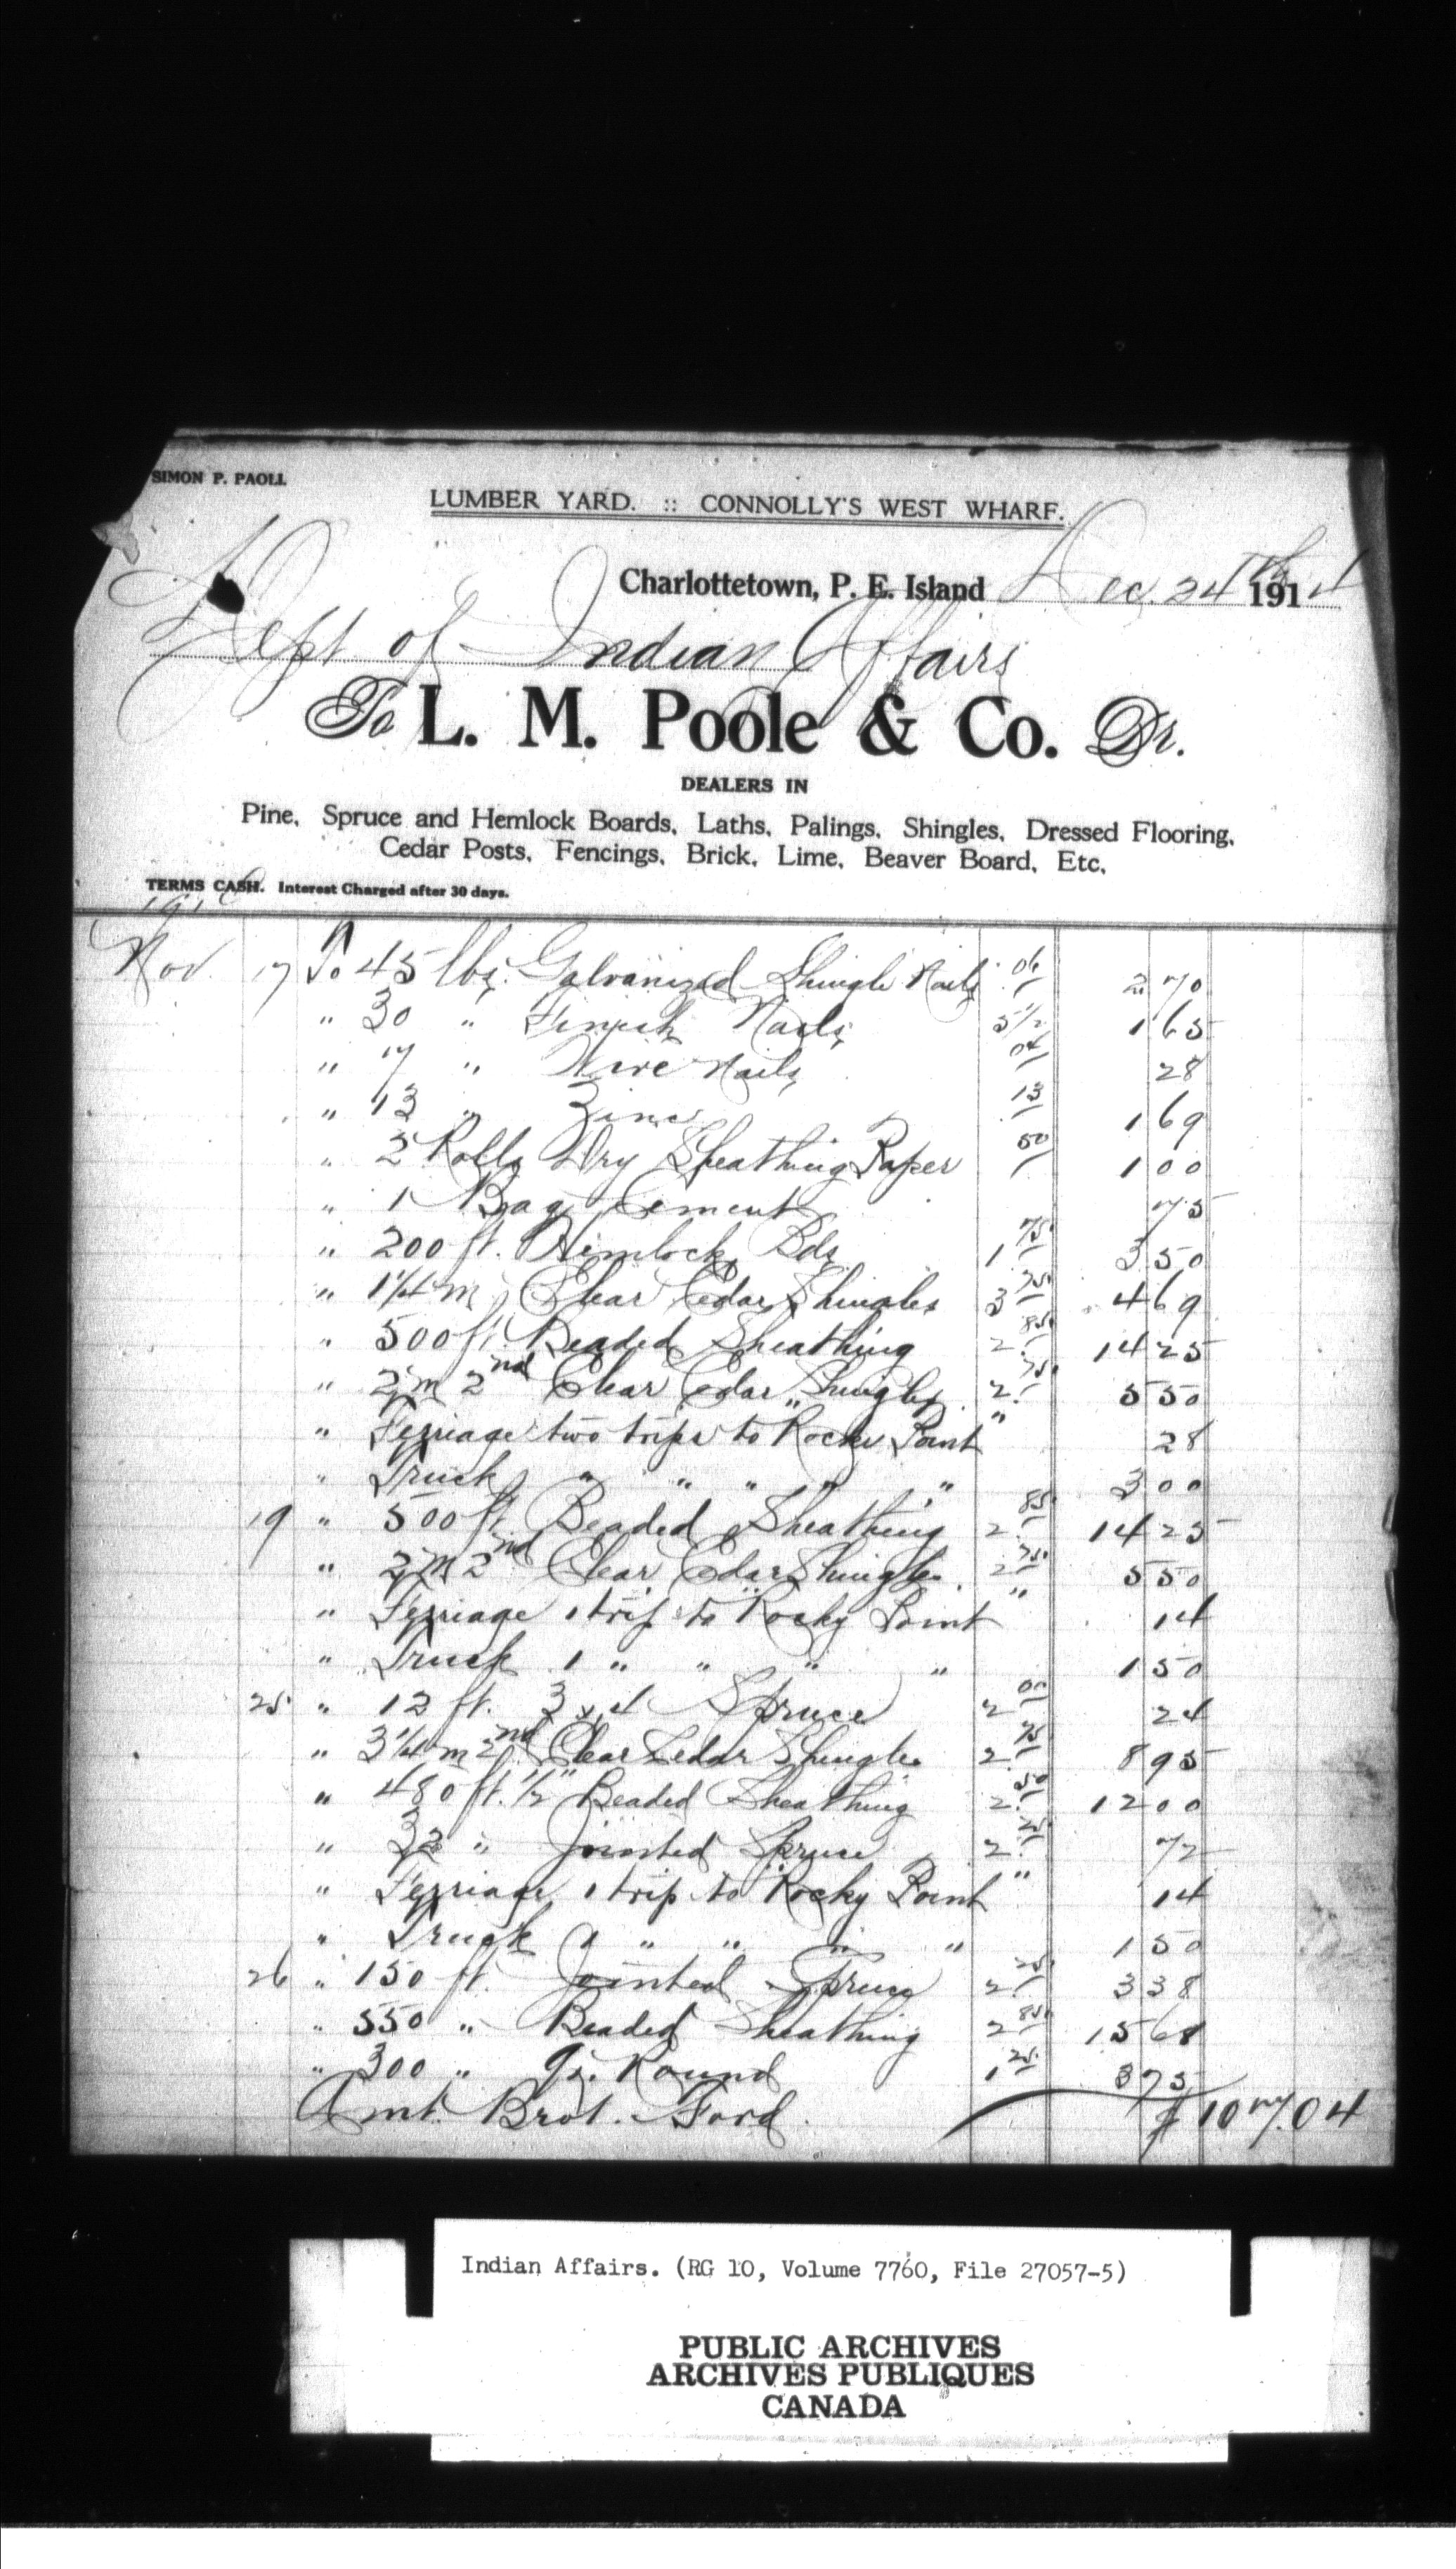 SIMON P. PAOLI.
LUMBER YARD. :: CONNOLLY'S WEST WHARF.
Charlottetown, P. E. Island Dec. 24th 1914
Dept of Indian Affairs
To L. M. Poole & Co. Dr.
DEALERS IN
Pine, Spruce and Hemlock Boards, Laths, Palings, Shingles, Dressed Flooring,
Cedar Posts, Fencings, Brick, Lime, Beaver Board, Etc,
TERMS CASH. Interest Charged after 30 days.
Nov. 17 To 45 lbs. Galvanized Shingle Nails 06 2 70
" 30 " Finish Nails 5 1/2 1 65
" 7 " Wire Nails 04 28
" 13 " Zinc 13 1 69
" 2 Rolls Dry Sheathing Paper 50 1 00
" 1 Bag Cement 75
" 200 ft. Hemlock Bds 1 75 3 50
" 1 1/4 m Clear Cedar Shingles 3 75 4 69
" 500 ft. Beaded Sheathing 2 85 14 25
" 2 m 2nd Clear Cedar Shingles 2 75 5 50
" Ferriage two trips to Rocky Point " 28
" Truck " " " " " 3 00
19 " 500 ft. Beaded Sheathing 2 85 14 25
" 2 m 2nd Clear Cedar Shingles 2 75 5 50
" Ferriage 1 trip to Rocky Point " 14
" Truck 1 " " " " 1 50
25 " 12 ft. 3 x 4 Spruce 2 00 24
" 3 1/4 m 2nd Clear Cedar Shingles 2 75 8 95
" 480 ft. 1/2" Beaded Sheathing 2 50 12 00
" 32 " Jointed Spruce 2 25 72
" Ferriage 1 trip to Rocky Point " 14
" Truck 1 " " " " 1 50
26 " 150 ft. Jointed Spruce 2 25 3 38
" 550 " Beaded Sheathing 2 85 15 68
" 300 " Qr. Round 1 25 3 75
Amt. Brot. Ford. $107.04
Indian Affairs. (RG 10, Volume 7760, File 27057-5)
PUBLIC ARCHIVES
ARCHIVES PUBLIQUES
CANADA